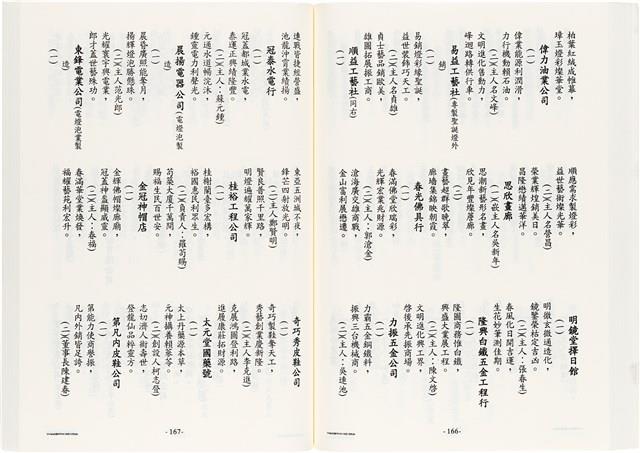 柏葉紅絨成帷幕，
璋玉燈彩燦華堂。
偉力油業公司
(一)
偉業能源利潤滑，
力行機動賴石油。
(二)(主人名文峰)
文明進化售動力，
峰迴路轉供行車。
易益工藝社(專製聖誕燈外銷)
(一)
易銷燈彩緣聖誕，
益世裝飾巧天工。
(二)(主人名貞雄)
貞士藝品銷歐美，
雄圖拓展振工商。
順益工藝社(同右)
(一)
順應需求製燈彩，
益世藝術燦光華。
(二)(主人名營昌)
榮業輝煌銷美日，
昌隆懋績邁華洋。
思欣畫廊
(一)
思潮新藝形名畫，
欣見年豐燦麗廊。
(二)(嵌主人名吳新年)
畫藝超群歌晚翠，
廊墻集錦映朝霞。
春光佛具行
(一)
春滿佛堂欣瑞彩，
光輝宏業兆財源。
(二)(主人名：郭滄金)
滄海廣交雄商戰，
金山富利展懋遷。
明鏡堂擇日館
(一)
明徵玄微通造化，
鏡鑿榮枯定吉凶。
(二)(主人：張春生)
春風化日開吉運，
生花妙筆測佳期。
隆興白鐵五金工程行
(一)
隆圖商務惟白鐵，
興盛大業展工程。
(二)(主人：陳文啓)
文明進化興工界，
啓後承先振商場。
力振五金公司
(一)
力霸五金鋼鐵料，
振興三台機械商。
(二)(主人：吳連池)
-166-
連戰皆捷經營盛，
池龍沖宵業績揚。
冠泰水電行
(一)
冠蓋都城業水電，
泰運正興績隆豐。
(二)(主人：蘇元鍾)
元通水道暢浣沐，
鍾靈電力利聲光。
晨揚電器公司(電燈泡業製造)
(一)
晨昏廣照能奪月，
揚輝燈泡勝懸珠。
(二)(主人范光郎)
光耀寰宇興電業，
郎才蓋世藝殊功。
東鋒電業公司(電燈泡業製造)
(一)
東亞五洲城不夜，
鋒芒四射放光明。
(二)(主人鄭賢明)
賢良普照千里路，
明燈遍耀萬家輝。
桂裕工程公司
(一)
桂樹蘭臺多宏構，
裕國惠民利眾生。
(二)(負責人：羅苟賜)
苟築大廈千萬間，
賜福生民百世安。
金冠神帽店
(一)
金輝佛帽燦廊廟，
冠蓋神盔顯威靈。
(二)(主人：春福)
春滿華堂業煥發，
福耀藝苑利宏升。
奇巧秀皮鞋公司
(一)
奇巧製鞋奪天工，
秀藝創業慶新隆。
(二)(主人李克進)
克展鴻圖登利路，
進履康莊拓財源。
太元堂國藥號
(一)
太上丹藥源本草，
元神攝養賴蔘苓。
(二)(創設人柯志登)
志切濟人術壽世，
登龍仙品粹靈方。
第凡內皮鞋公司
(一)
第能力使商譽振，
凡內外銷皆足誇。
(二)(董事長陳建春)
-167-